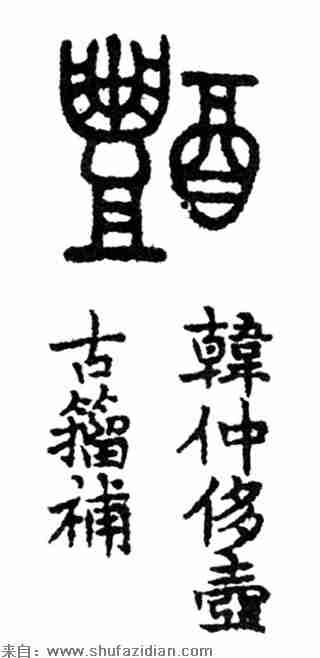 醴
韓仲侈壺
古籀補
来自：www.shufazidian.com